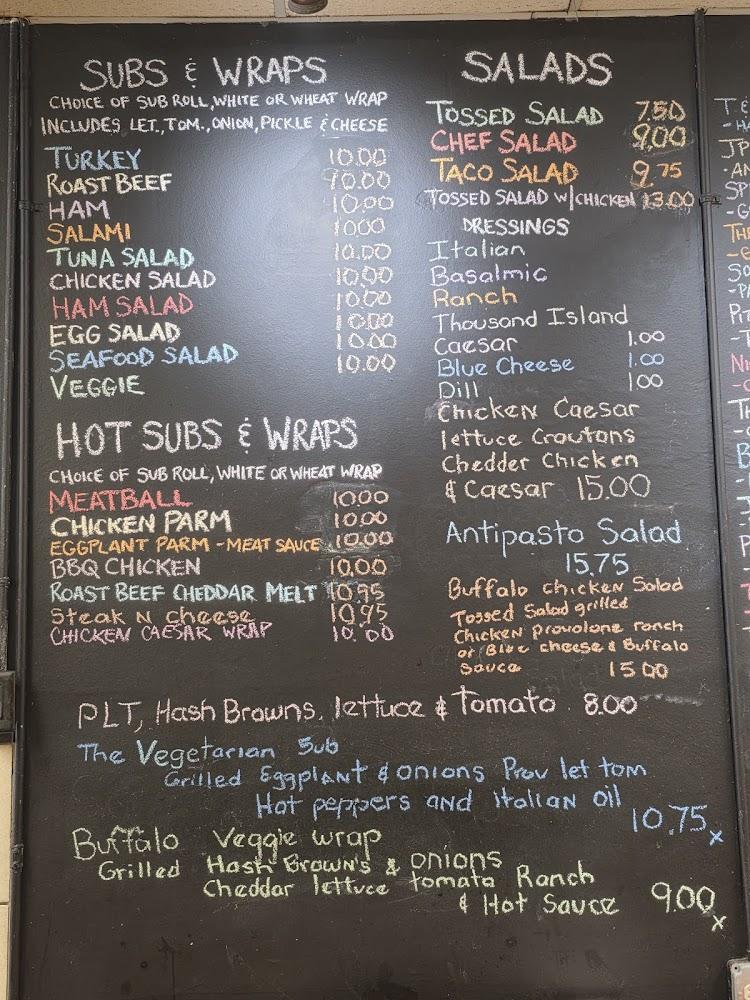 SUBS & WRAPS
CHOICE OF SUB ROLL, WHITE OR WHEAT WRAP
INCLUDES LET., TOM., ONION, PICKLE & CHEESE
TURKEY 10.00
ROAST BEEF 10.00
HAM 10.00
SALAMI 10.00
TUNA SALAD 10.00
CHICKEN SALAD 10.00
HAM SALAD 10.00
EGG SALAD 10.00
SEAFOOD SALAD 10.00
VEGGIE 10.00
HOT SUBS & WRAPS
CHOICE OF SUB ROLL, WHITE OR WHEAT WRAP
MEATBALL 10.00
CHICKEN PARM 10.00
EGGPLANT PARM - MEAT SAUCE 10.00
BBQ CHICKEN 10.00
ROAST BEEF CHEDDAR MELT 10.95
Steak N Cheese 10.95
CHICKEN CAESAR WRAP 10.00
SALADS
TOSSED SALAD 7.50
CHEF SALAD 9.00
TACO SALAD 9.75
TOSSED SALAD W/CHICKEN 13.00
DRESSINGS
Italian
Basalmic
Ranch
Thousand Island
Caesar 1.00
Blue Cheese 1.00
Dill 1.00
Chicken Caesar
lettuce Croutons
Chedder Chicken
& Caesar 15.00
Antipasto Salad
15.75
Buffalo chicken Salad
Tossed Salad grilled
Chicken provolone ranch
or Blue cheese & Buffalo
Sauce 15.00
PLT, Hash Browns, lettuce & Tomato 8.00
The Vegetarian Sub
Grilled Eggplant & onions Prov let tom
Hot peppers and italian oil
10.75 x
Buffalo Veggie wrap
Grilled Hash Brown's & onions
Cheddar lettuce tomato Ranch
& Hot Sauce 9.00 x